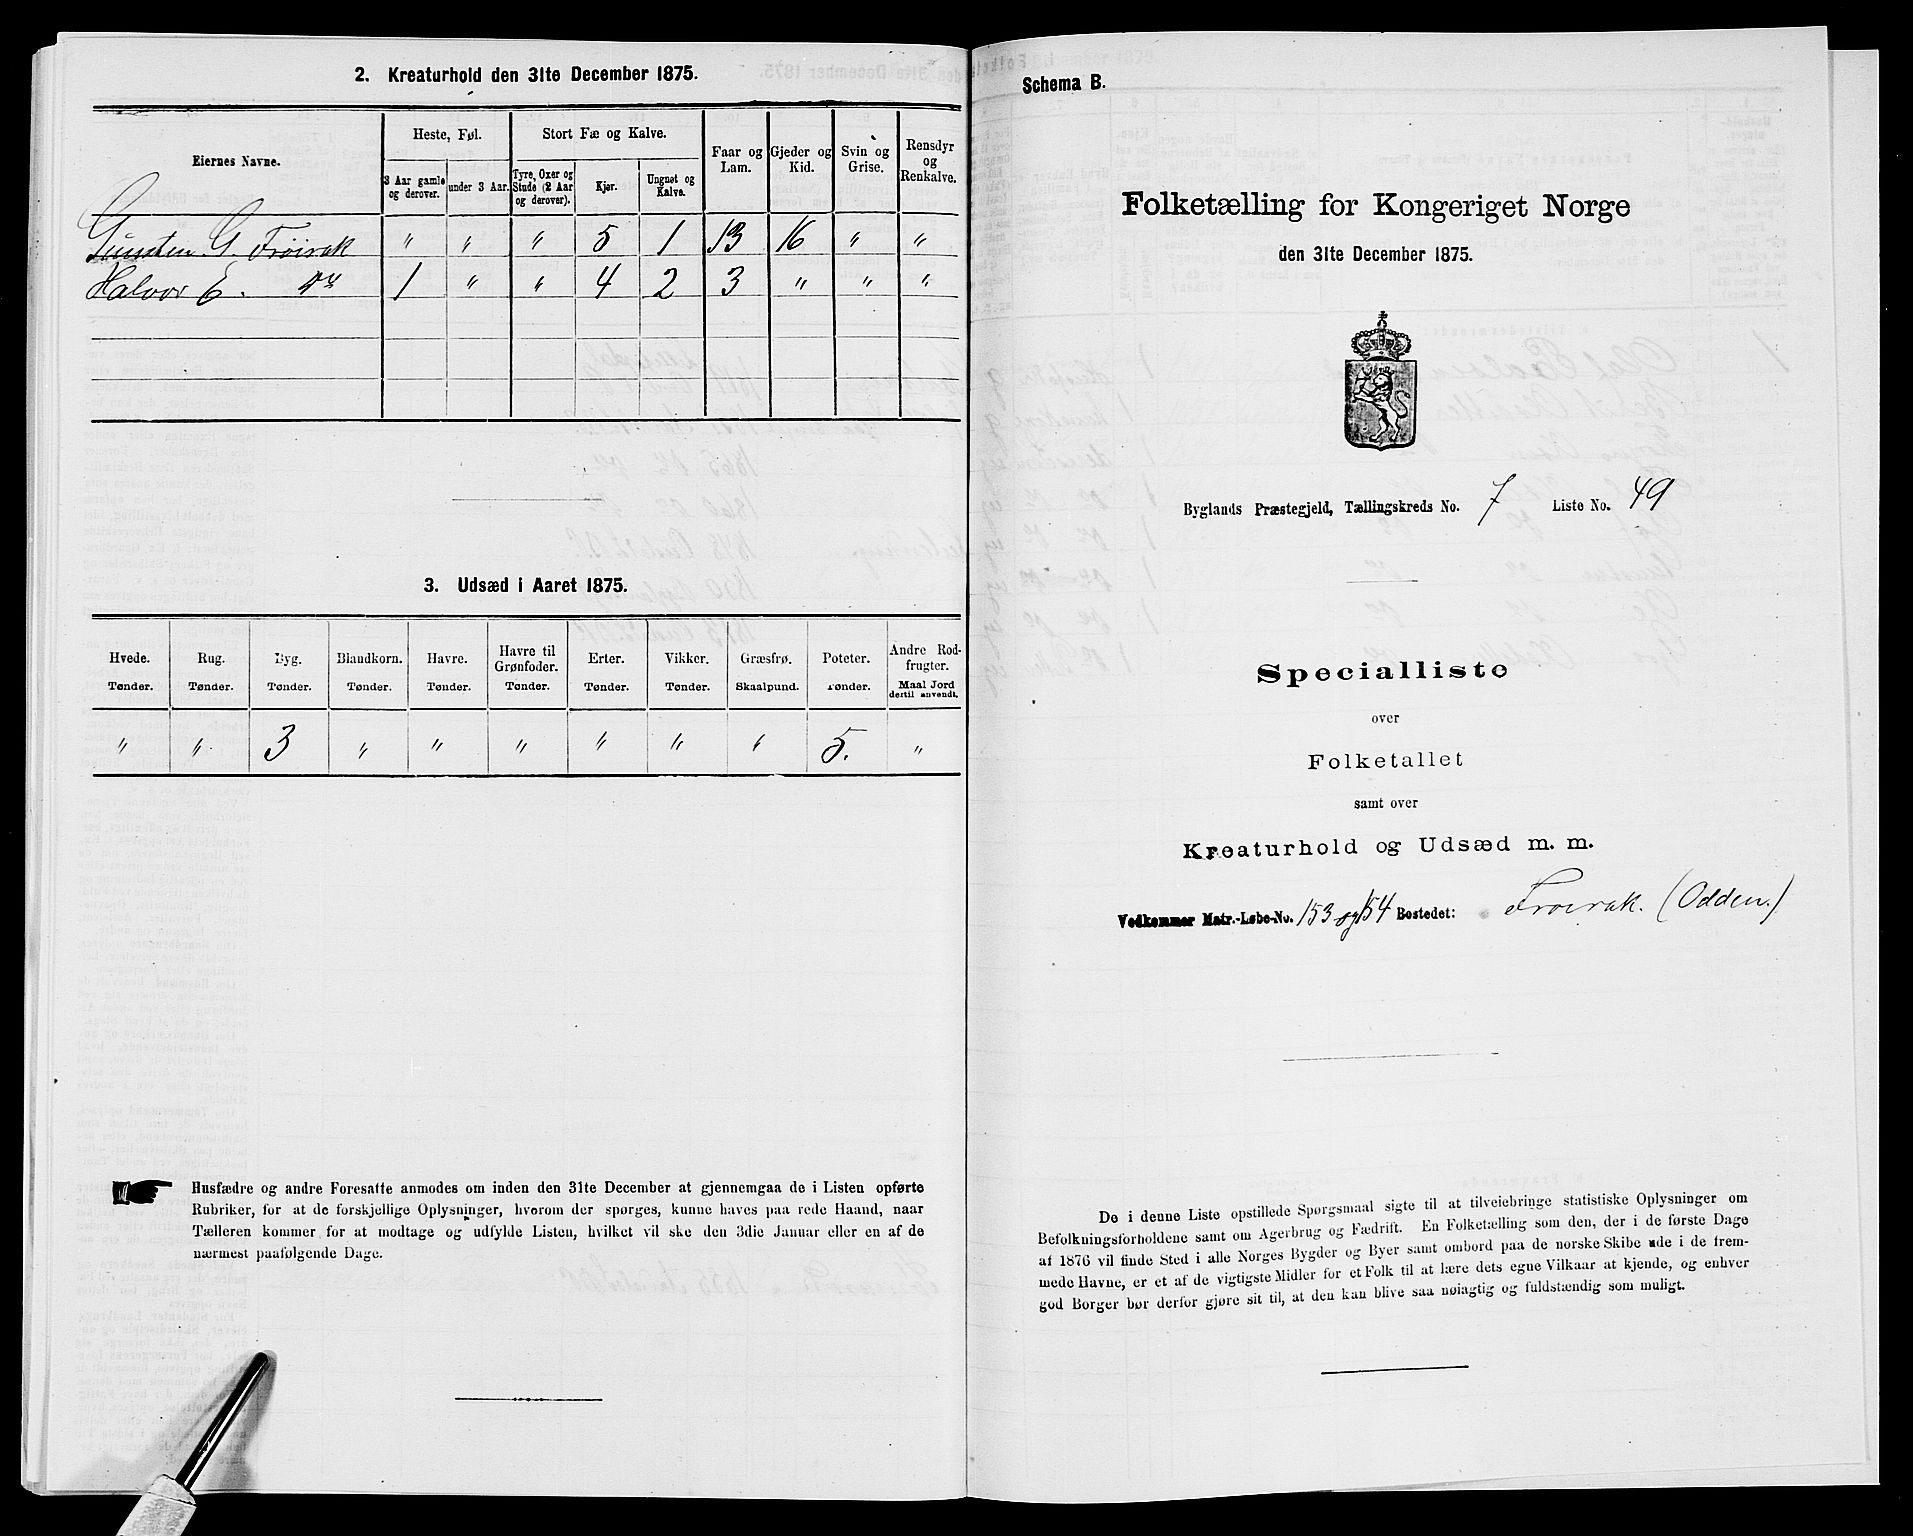 2. Kreaturhold den 31te December 1875.
Eiernes Navne.
Heste, Føl.
Stort Fæ og Kalve.
Faar og Lam.
Gjeder og Kid.
Svin og Grise.
Rensdyr og Renkalve.
3 Aar gamle og derover.
under 3 Aar.
Tyre, Oxer og Stude (2 Aar og derover).
Kjør.
Ungnøt og Kalve.
Gunsten G. Froirak " " " 5 1 13 16 " "
Halvor E. do 1 " " 4 2 3 " " "
3. Udsæd i Aaret 1875.
Hvede. Rug. Byg. Blandkorn. Havre. Havre til Grønfoder. Erter. Vikker. Græsfrø. Poteter. Andre Rodfrugter.
Tønder. Tønder. Tønder. Tønder. Tønder. Tønder. Tønder. Tønder. Skaalpund. Tønder. Maal Jord dertil anvendt.
" " 3 " " " " " " 5. "
Husfædre og andre Foresatte anmodes om inden den 31te December at gjennemgaa de i Listen opførte
Rubriker, for at de forskjellige Oplysninger, hvorom der spørges, kunne haves paa rede Haand, naar
Tælleren kommer for at modtage og udfylde Listen, hvilket vil ske den 3die Januar eller en af de
nærmest paafølgende Dage.
Schema B.
Folketælling for Kongeriget Norge
den 31te December 1875.
Byglands Præstegjeld, Tællingskreds No. 7 Liste No. 49
Specialliste
over
Folketallet
samt over
Kreaturhold og Udsæd m. m.
Vedkommer Matr.-Løbe-No. 153 og 154 Bostedet: Froirak. (Odden.)
De i denne Liste opstillede Spørgsmaal sigte til at tilveiebringe statistiske Oplysninger om
Befolkningsforholdene samt om Agerbrug og Fædrift. En Folketælling som den, der i de første Dage
af 1876 vil finde Sted i alle Norges Bygder og Byer samt ombord paa de norske Skibe ude i de frem-
mede Havne, er et af de vigtigste Midler for et Folk til at lære dets egne Vilkaar at kjende, og enhver
god Borger bør derfor gjøre sit til, at den kan blive saa nøiagtig og fuldstændig som muligt.